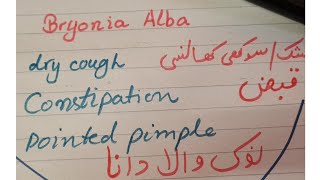 Bryonia Alba
dry cough خشک/سوکھی کھانسی
Constipation قبض
pointed pimple نوک والا دانا